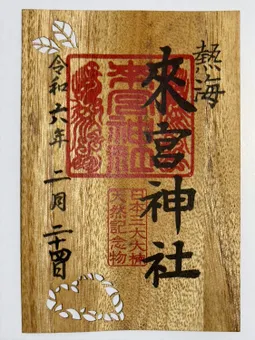 熱海
來宮神社
來宮神社
日本三大大楠
天然記念物
令和六年 二月 二十四日